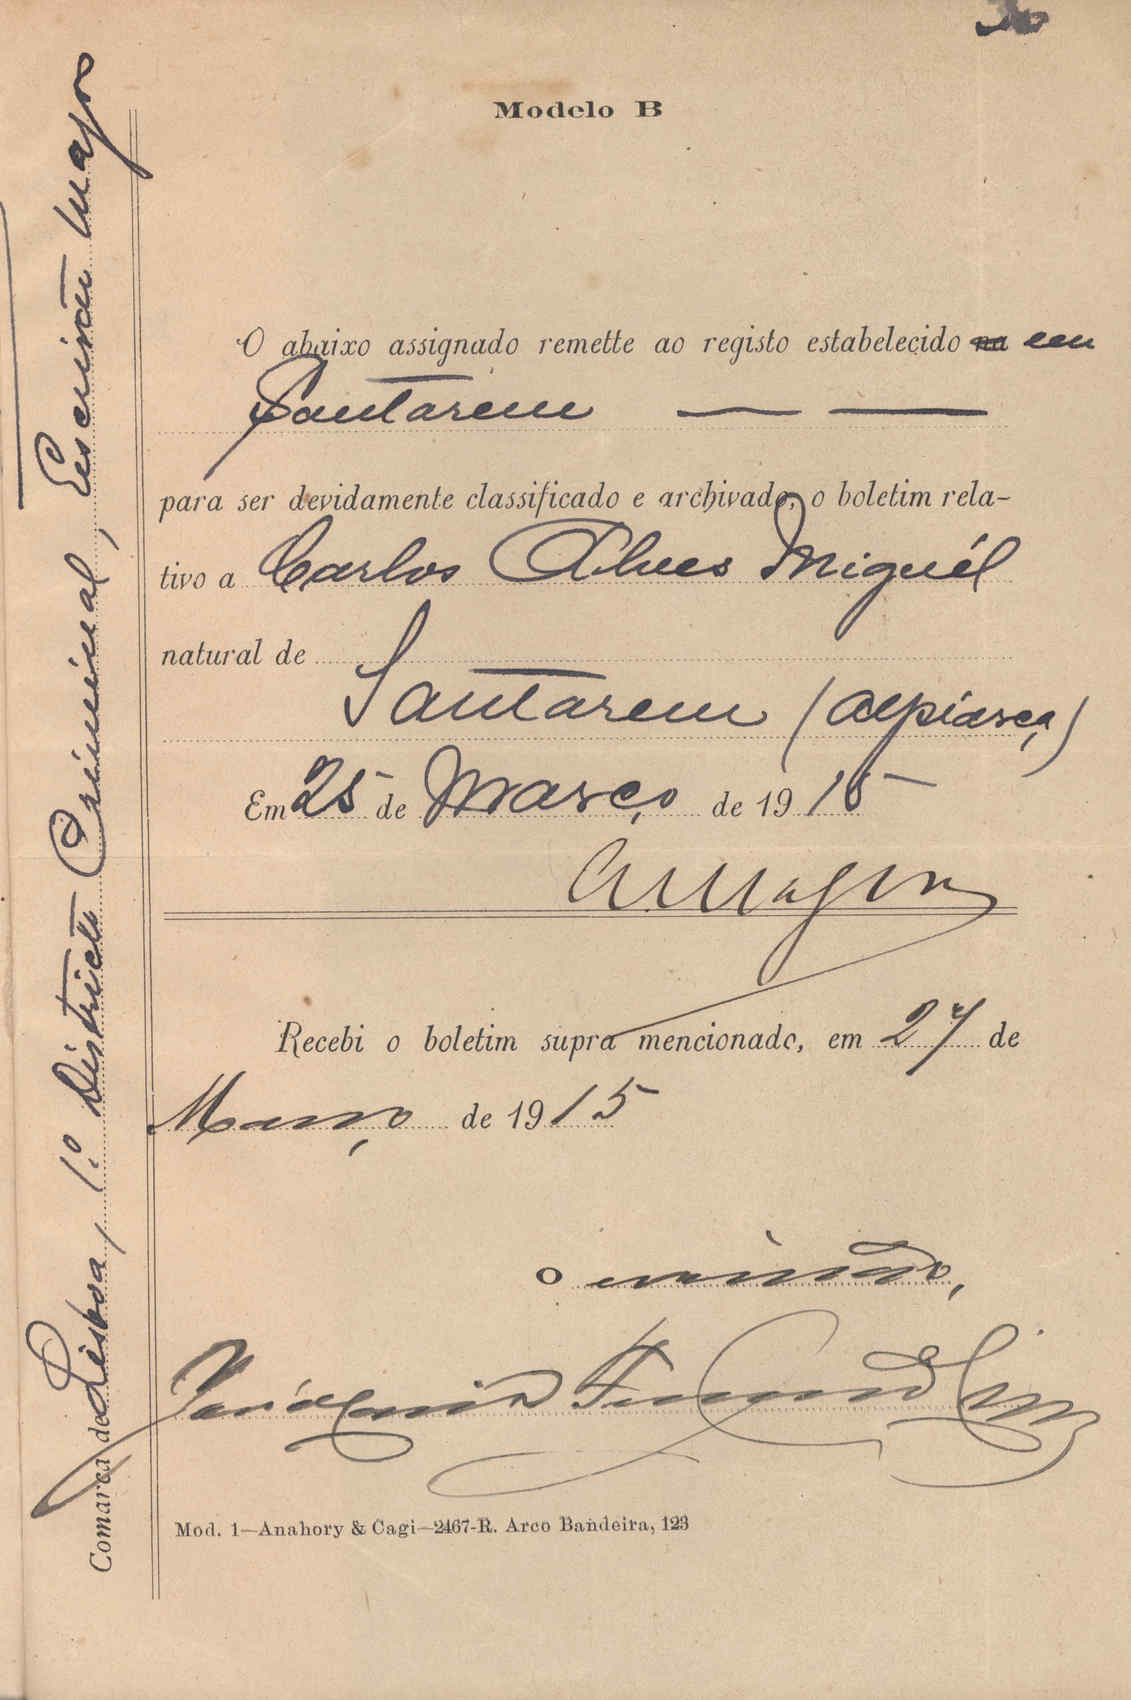 Modelo B
O abaixo assignado remette ao registo estabelecido na em
Santarem
para ser devidamente classificado e archivado, o boletim rela-
tivo a Carlos Alves Miguél
natural de
Santarem (Alpiarça)
Em 25 de Março de 1915
Recebi o boletim supra mencionado, em 27 de
Março de 1915
O escrivão,
Mod. 1—Anahory & Cagi—2467-R. Arco Bandeira, 123
Comarca de Lisboa, 1.º Districto Criminal, Escrivão Major